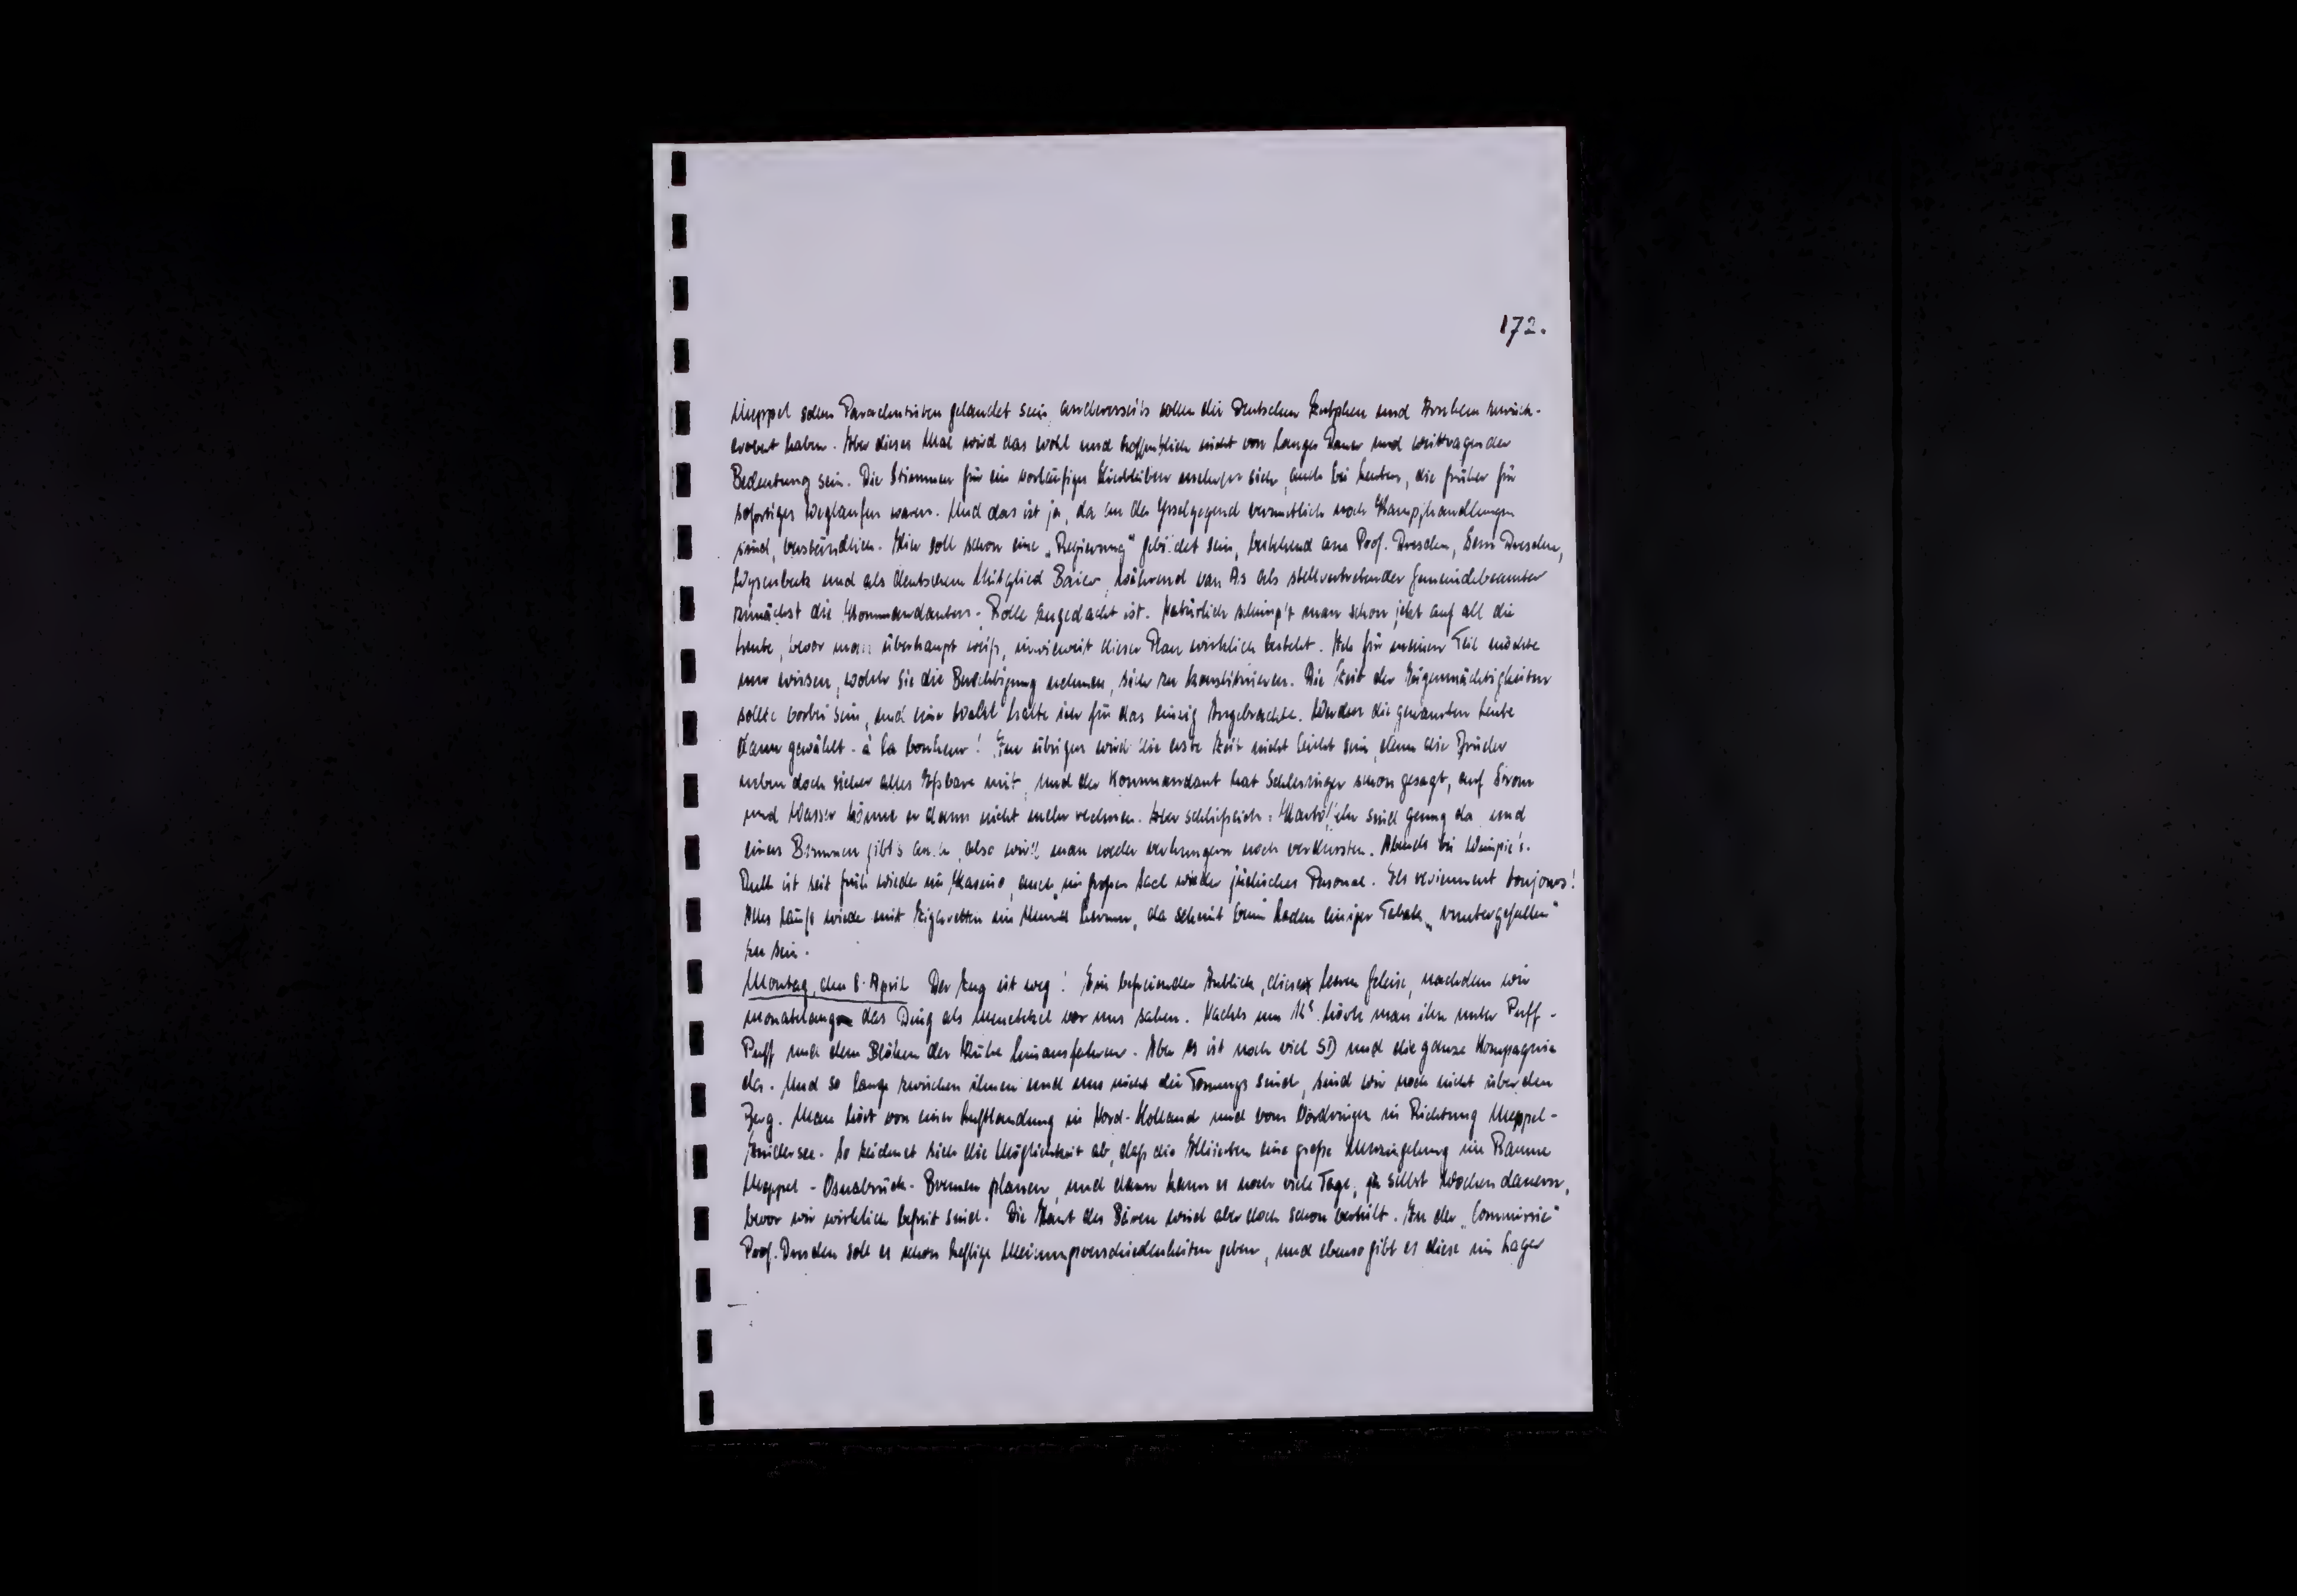 172.
Meppel sollen Parachutisten gelandet sein andererseits sollen die Deutschen Zutphen und Arnhem zurück-
erobert haben. Aber dieses Mal wird das wohl und hoffentlich nicht von langer Dauer und weittragender
Bedeutung sein. Die Stimmen für ein vorläufiges Hierbleiben mehren sich, auch bei Leuten, die früher für
sofortiges Weglaufen waren. Und das ist ja, da in der Ysselgegend vermutlich noch Kampfhandlungen
sind, verständlich. Hier soll schon eine „Regierung" gebildet sein, bestehend aus Prof. Dresden, Dresden,
und als deutschem Mitglied Baier, während van As als stellvertretender Gemeindebeamter
zunächst die Kommandanten-Rolle zugedacht ist. Natürlich schimpft man schon jetzt auf all die
Leute, bevor man überhaupt weiß, inwieweit dieser Plan wirklich besteht. Ich für meinen Teil möchte
nur wissen, woher sie die Berechtigung nehmen, sich zu konstituieren. Die Zeit der Eigenmächtigkeiten
sollte vorbei sein, und eine Wahl halte ich für das einzig Angebrachte. Werden die genannten Leute
dann gewählt - à la bonheur! Im übrigen wird die erste Zeit nicht leicht sein, denn die Brüder
nehmen doch sicher alles Eßbare mit, und der Kommandant hat Schlesinger schon gesagt, auf Strom
und Wasser könne er dann nicht mehr rechnen. Aber schließlich: Kartoffeln sind genug da und
einen Brunnen gibt's auch, also wird man weder verhungern noch verdursten. Abends bei
ist seit früh wieder im Kasino, auch im großen Saal wieder jüdisches Personal. Ils reviennent toujours!
Alles läuft wieder mit Zigaretten im Mund herum, da scheint beim Laden einiger Tabak „runtergefallen"
zu sein.
Montag, den 8. April Der Zug ist weg! Ein befreiender Anblick, diese leeren Geleise, nachdem wir
monatelang das Ding als Menetekel vor uns sahen. Nachts um hörte man ihn unter Puff-
Puff und dem Blöken der Kühe hinausfahren. Aber es ist noch viel SD und die ganze Kompagnie
da. Und so lange zwischen ihnen und uns nicht die Tommys sind, sind wir noch nicht über den
Berg. Man hört von einer Luftlandung in Nord-Holland und vom Vordringen in Richtung Meppel-
Zuidersee. So zeichnet sich die Möglichkeit ab, daß die Alliierten eine große Umzingelung im Raume
Meppel - Osnabrück - Bremen planen, und dann kann es noch viele Tage, ja selbst Wochen dauern,
bevor wir wirklich befreit sind. Die Haut des Bären wird aber doch schon verteilt. In der „Commissie"
Prof. Dresden soll es schon heftige Meinungsverschiedenheiten geben, und ebenso gibt es diese im Lager